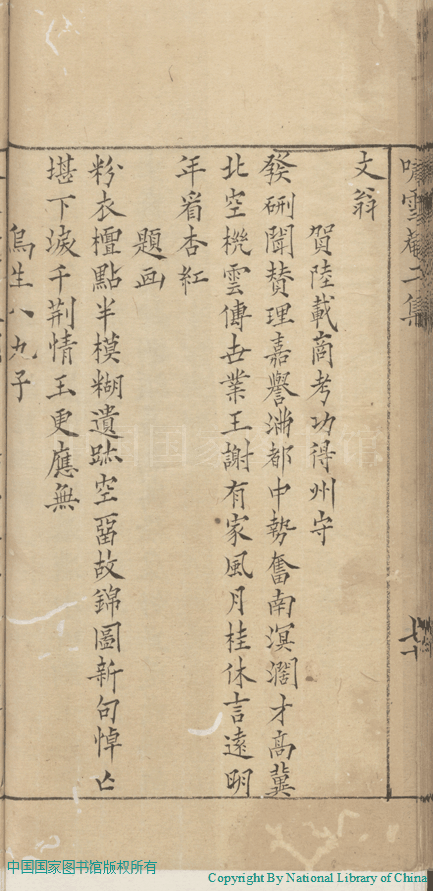 嘯雲菴二集
文翁
賀陸載商考功得州守
發硎聞賛理嘉譽滿都中勢奮南溟濶才高冀
北空機雲傳世業王謝有家風月桂休言遠明
年看杏紅
題画
粉衣檀點半模糊遺跡空留故錦圖新句悼亡
堪下淚千荆情王更應無
烏生八九子
中国国家图书馆
中国国家图书馆版权所有
Copyright By National Library of China